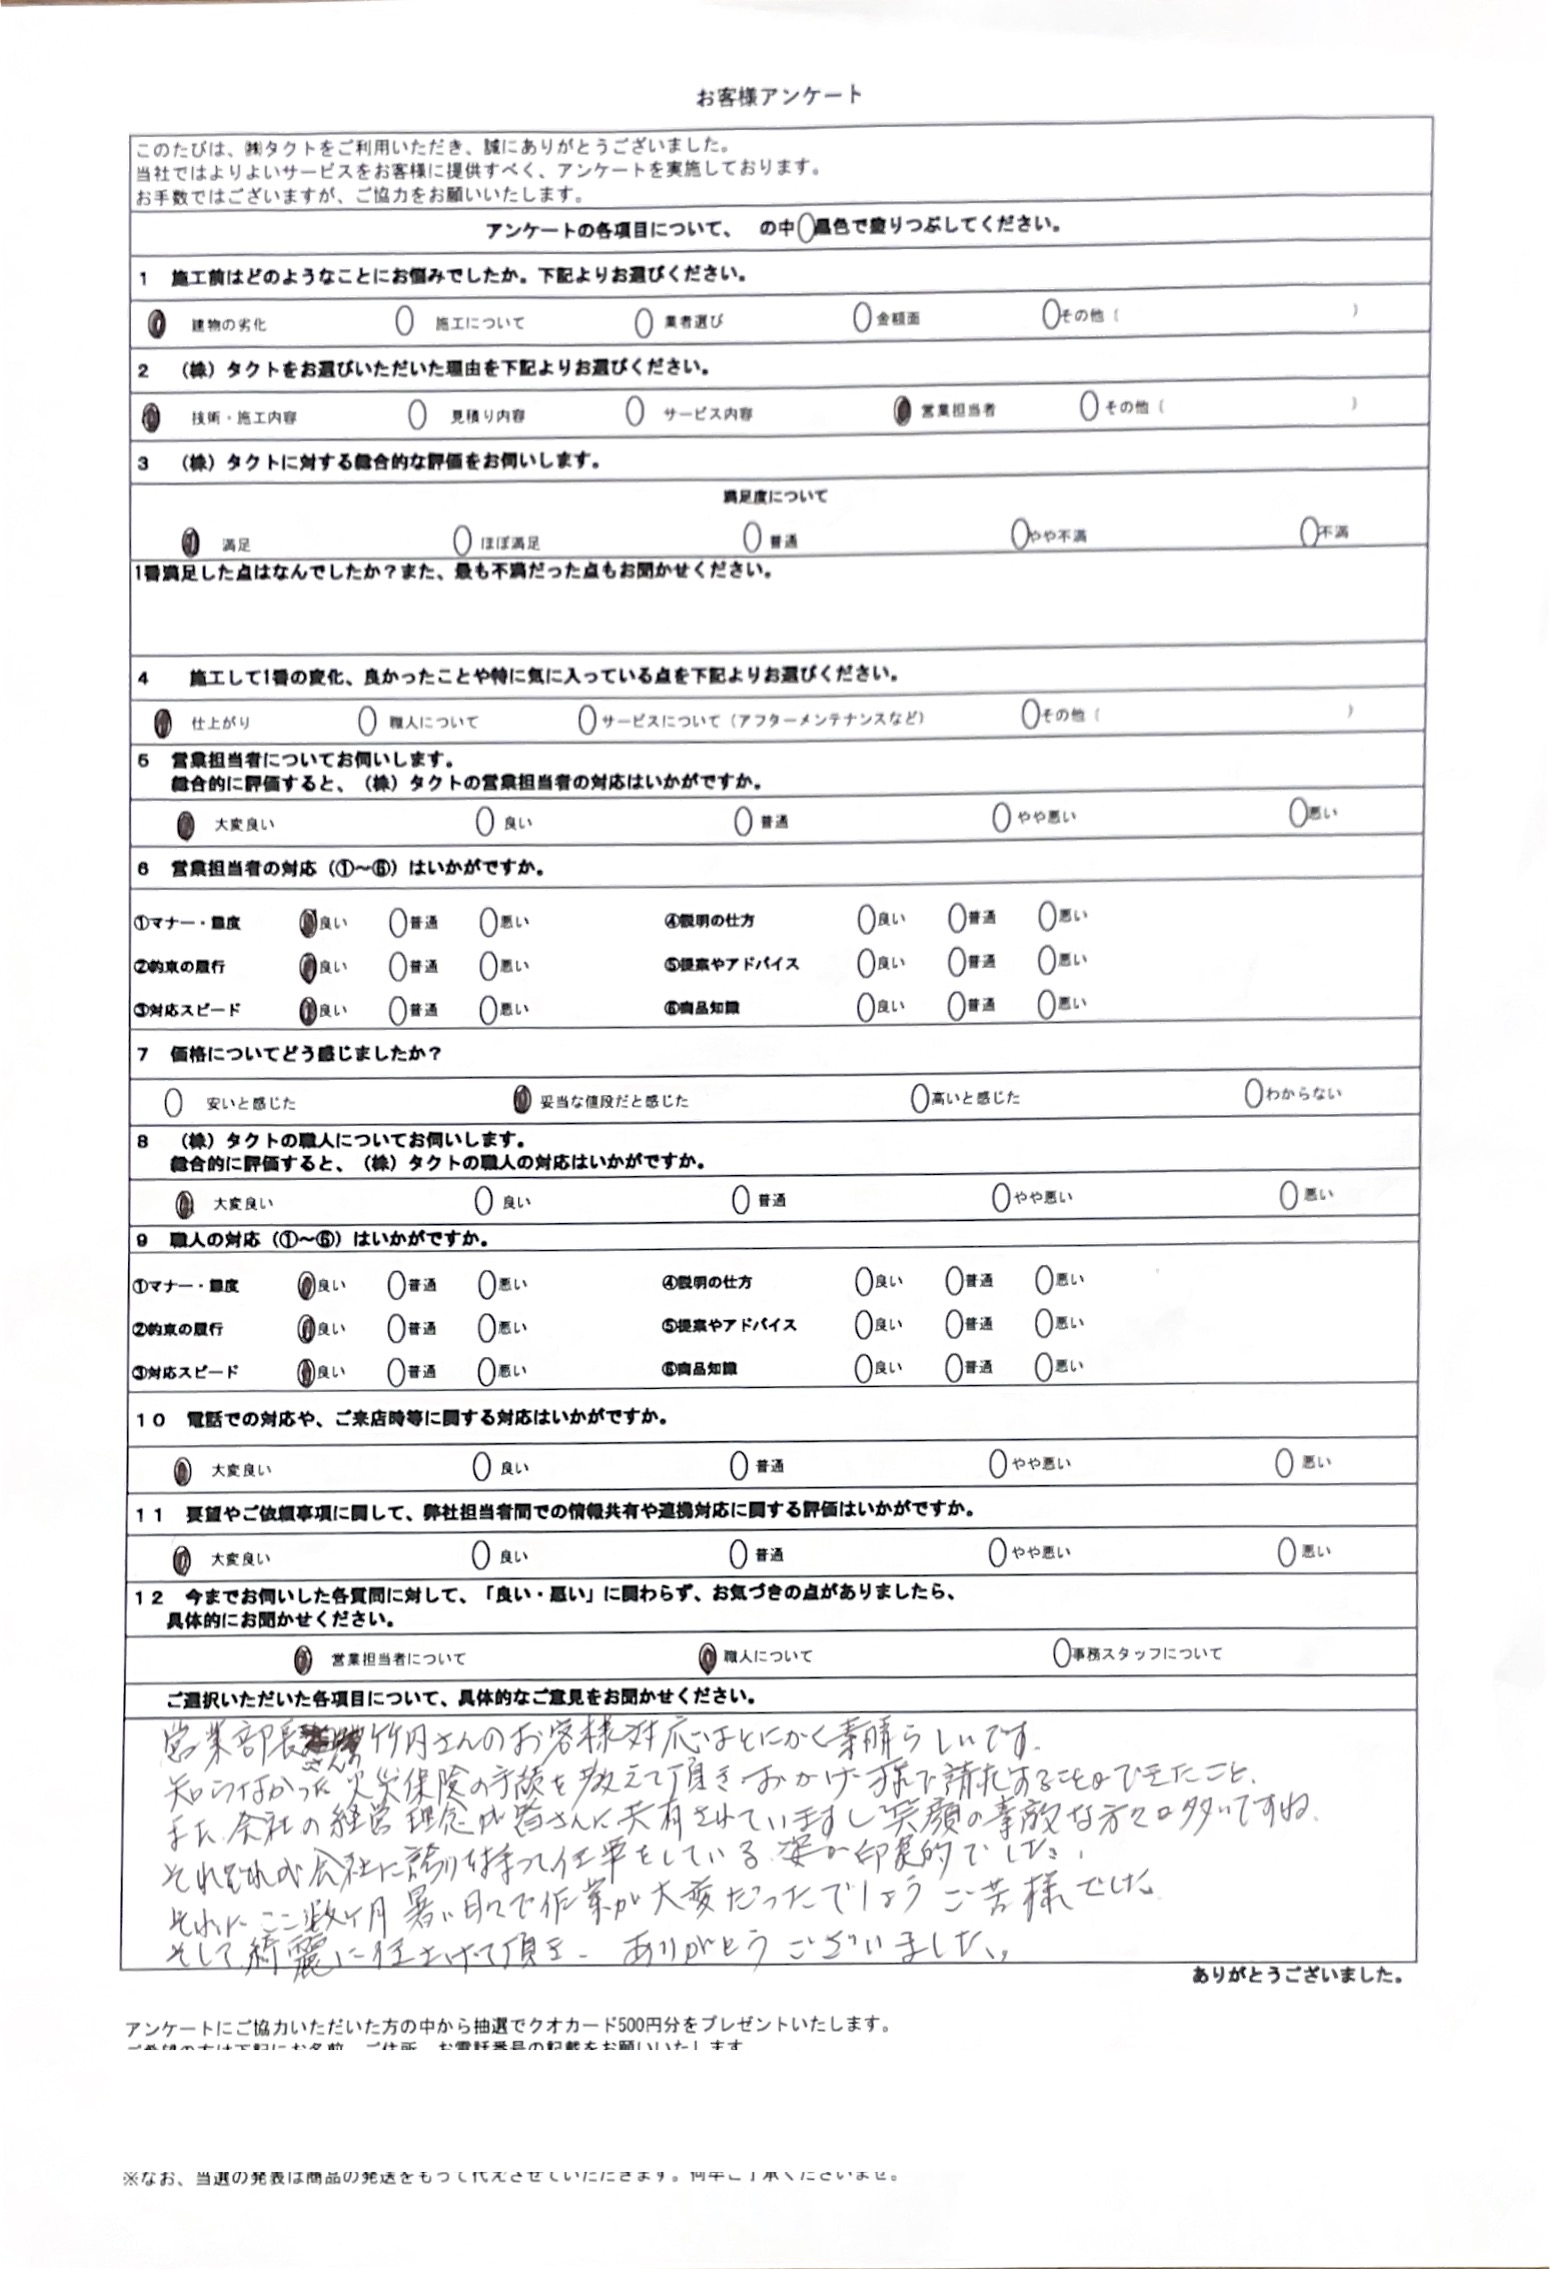 お客様アンケート
このたびは、㈱タクトをご利用いただき、誠にありがとうございました。
当社ではよりよいサービスをお客様に提供すべく、アンケートを実施しております。
お手数ではございますが、ご協力をお願いいたします。
アンケートの各項目について、 の中 黒色で塗りつぶしてください。
1 施工前はどのようなことにお悩みでしたか。下記よりお選びください。
建物の劣化 施工について 業者選び 金額面 その他( )
2 (株)タクトをお選びいただいた理由を下記よりお選びください。
技術・施工内容 見積り内容 サービス内容 営業担当者 その他( )
3 (株)タクトに対する総合的な評価をお伺いします。
満足度について
満足 ほぼ満足 普通 やや不満 不満
1番満足した点はなんでしたか?また、最も不満だった点もお聞かせください。
4 施工して1番の変化、良かったことや特に気に入っている点を下記よりお選びください。
仕上がり 職人について サービスについて(アフターメンテナンスなど) その他( )
5 営業担当者についてお伺いします。
総合的に評価すると、(株)タクトの営業担当者の対応はいかがですか。
大変良い 良い 普通 やや悪い 悪い
6 営業担当者の対応(①~⑥)はいかがですか。
①マナー・態度 良い 普通 悪い ④説明の仕方 良い 普通 悪い
②約束の履行 良い 普通 悪い ⑤提案やアドバイス 良い 普通 悪い
③対応スピード 良い 普通 悪い ⑥商品知識 良い 普通 悪い
7 価格についてどう感じましたか?
安いと感じた 妥当な値段だと感じた 高いと感じた わからない
8 (株)タクトの職人についてお伺いします。
総合的に評価すると、(株)タクトの職人の対応はいかがですか。
大変良い 良い 普通 やや悪い 悪い
9 職人の対応(①~⑥)はいかがですか。
①マナー・態度 良い 普通 悪い ④説明の仕方 良い 普通 悪い
②約束の履行 良い 普通 悪い ⑤提案やアドバイス 良い 普通 悪い
③対応スピード 良い 普通 悪い ⑥商品知識 良い 普通 悪い
10 電話での対応や、ご来店時等に関する対応はいかがですか。
大変良い 良い 普通 やや悪い 悪い
11 要望やご依頼事項に関して、弊社担当者間での情報共有や連携対応に関する評価はいかがですか。
大変良い 良い 普通 やや悪い 悪い
12 今までお伺いした各質問に対して、「良い・悪い」に関わらず、お気づきの点がありましたら、
具体的にお聞かせください。
営業担当者について 職人について 事務スタッフについて
ご選択いただいた各項目について、具体的なご意見をお聞かせください。
営業部長 竹内さんのお客様対応はとにかく素晴らしいです。
知らなかった火災保険の手続を教えて頂きおかげ様で請求することができたこと、
また、会社の経営理念が皆さんに共有されていますし笑顔の素敵な方々が多いですね。
それぞれが会社に誇りを持って仕事をしている姿が印象的でした。
それに ここ数ヶ月 暑い日々で作業が大変だったでしょう ご苦労様でした。
そして、綺麗に仕上げて頂き、 ありがとうございました。
ありがとうございました。
アンケートにご協力いただいた方の中から抽選でクオカード500円分をプレゼントいたします。
ご希望の方は下記にお名前、ご住所、お電話番号の記載をお願いいたします
※なお、当選の発表は商品の発送をもって代えさせていただきます。何卒ご了承くださいませ。